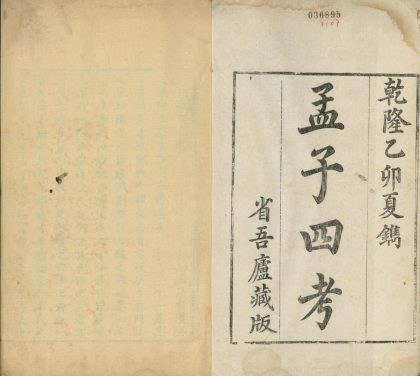 030895
乾隆乙卯夏鐫
孟子四考
省吾廬藏版